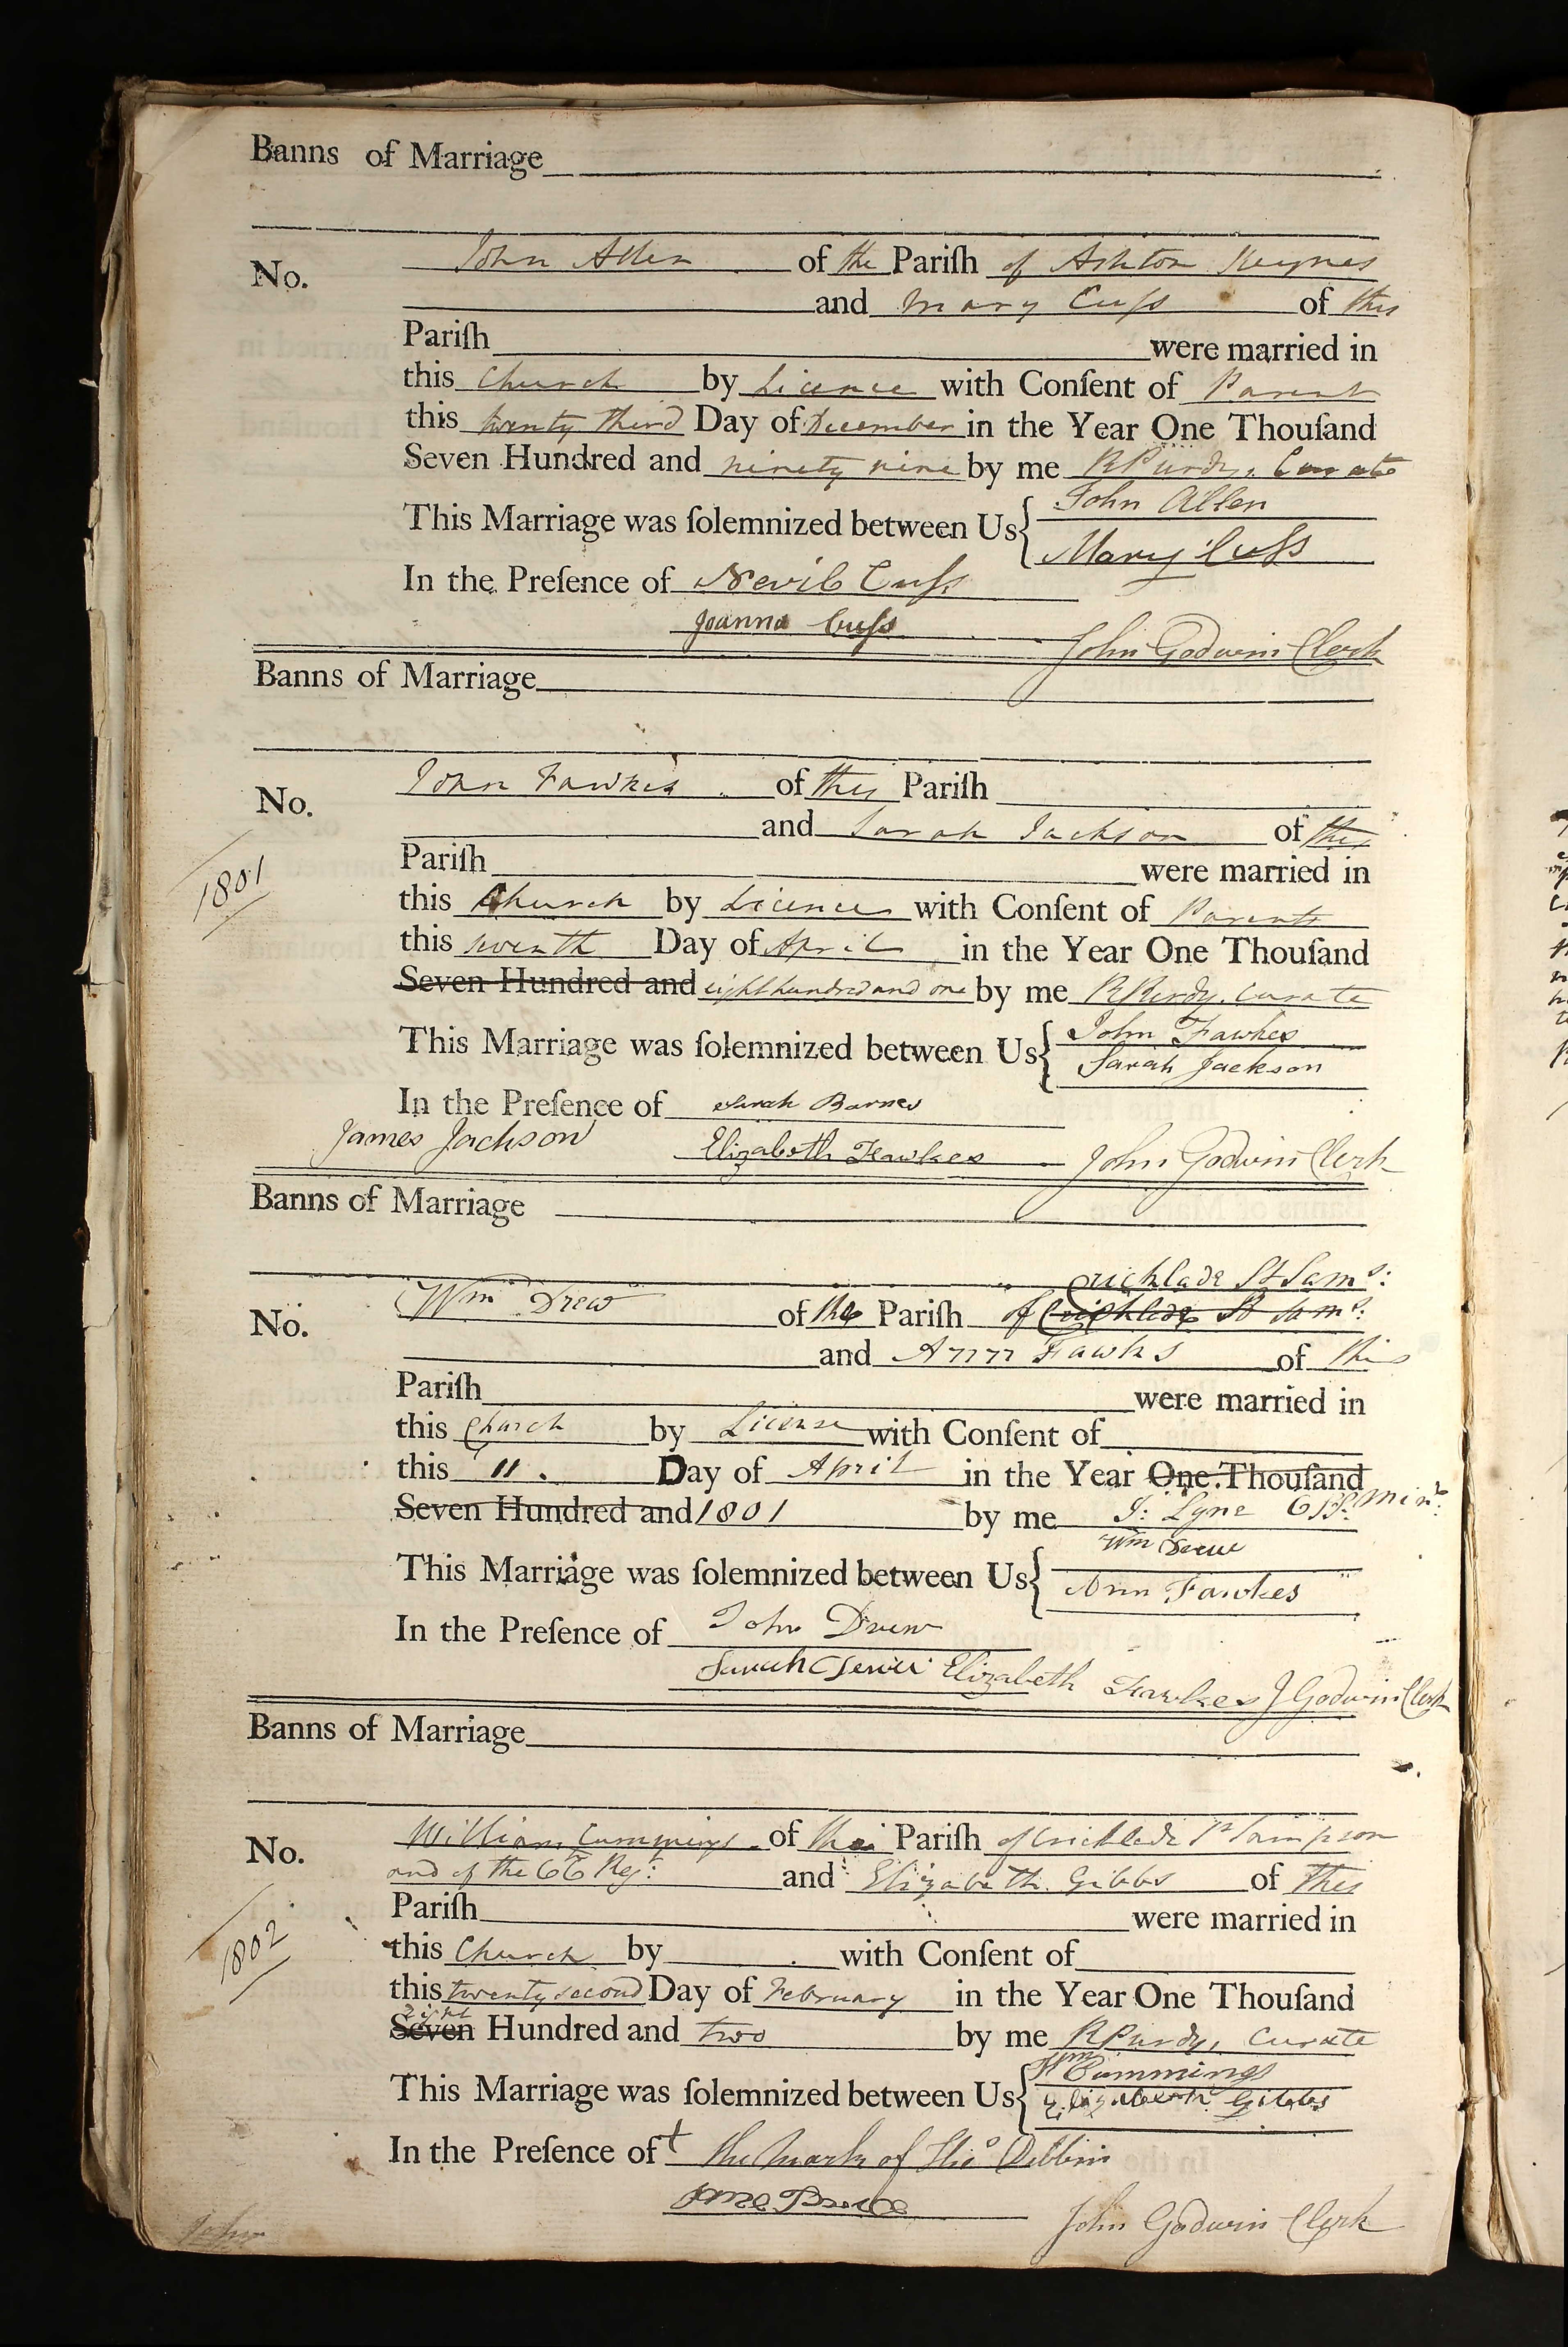 Banns of Marriage
No. John Allen of the Pariſh of Ashton Keynes
and Mary Cuſs of this
Pariſh were married in
this Church by Licence with Conſent of Parent
this twenty third Day of December in the Year One Thouſand
Seven Hundred and ninety nine by me R Purdy, Curate
This Marriage was ſolemnized between Us { John Allen
Mary Cuſs
In the Preſence of Nevil Cuſs
Joanna Cuſs
John Godwin Clerk
Banns of Marriage
No. John Fawkes of this Pariſh
and Sarah Jackson of this
1801
Pariſh were married in
this Church by Licence with Conſent of Parents
this seventh Day of April in the Year One Thouſand
Seven Hundred and eight hundred and one by me R Purdy, Curate
This Marriage was ſolemnized between Us { John Fawkes
Sarah Jackson
In the Preſence of Sarah Barnes
James Jackson Elizabeth Fawkes John Godwin Clerk
Banns of Marriage
Cricklade St Sams:
No. Wm Drew of the Pariſh of Cricklade St Sams:
and Ann Fawks of this
Pariſh were married in
this Church by License with Conſent of
this 11. Day of April in the Year One Thouſand
Seven Hundred and 1801 by me J: Lyne Minr.
This Marriage was ſolemnized between Us { Wm Drew
Ann Fawkes
In the Preſence of John Drew
Sarah Elizabeth Fawkes J Godwin Clerk
Banns of Marriage
No. William Cummings of the Pariſh of Cricklade St Sampson
and of the 66 Regt: and Elizabeth Gibbs of this
Pariſh were married in
1802
this Church by with Conſent of
this twenty second Day of February in the Year One Thouſand
Eight
Seven Hundred and two by me R Purdy, Curate
This Marriage was ſolemnized between Us { Wm Cummings
Elizabeth Gibbs
In the Preſence of + the Mark of Thos Dibbin
John Godwin Clerk
John